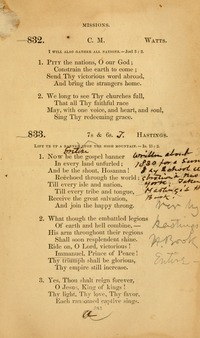 MISSIONS.
832. C. M. WATTS.
I WILL ALSO GATHER ALL NATIONS.—Joel 3: 2.
1. PITY the nations, O our God;
Constrain the earth to come;
Send Thy victorious word abroad,
And bring the strangers home.
2. We long to see Thy churches full,
That all Thy faithful race
May, with one voice, and heart, and soul,
Sing Thy redeeming grace.
833. 7s & 6s. T. HASTINGS.
LIFT YE UP A BANNER UPON THE HIGH MOUNTAIN.—Is. 13: 2.
1. Now be the gospel banner
In every land unfurled;
And be the shout, Hosanna
Reëchoed through the world;
Till every isle and nation,
Till every tribe and tongue,
Receive the great salvation,
And join the happy throng.
Written about
1830 for a
School
Hastings
Book
2. What though the embattled legions
Of earth and hell combine,—
His arm throughout their regions
Shall soon resplendent shine.
Ride on, O Lord, victorious!
Immanuel, Prince of Peace!
Thy triumph shall be glorious,
Thy empire still increase.
3. Yes, Thou shalt reign forever,
O Jesus, King of kings!
Thy light, Thy love, Thy favor,
Each ransomed captive sings.